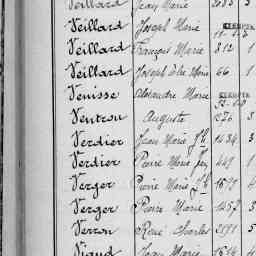 Veillard Jean Marie 2685 3
Veillard Joseph Marie EXEMPTE
Veillard François Marie 812 1
Veillard Joseph 66 1
Venisse Alexandre Marie EXEMPTE
Ventrou Auguste 1226 3
Verdier Jean Marie 1434 3
Verdier Pierre Marie 449 1
Verger Pierre Marie 4
Verger Pierre Marie 1457 3
Verron René Charles 2171 5
Viaud Jean Marie 4